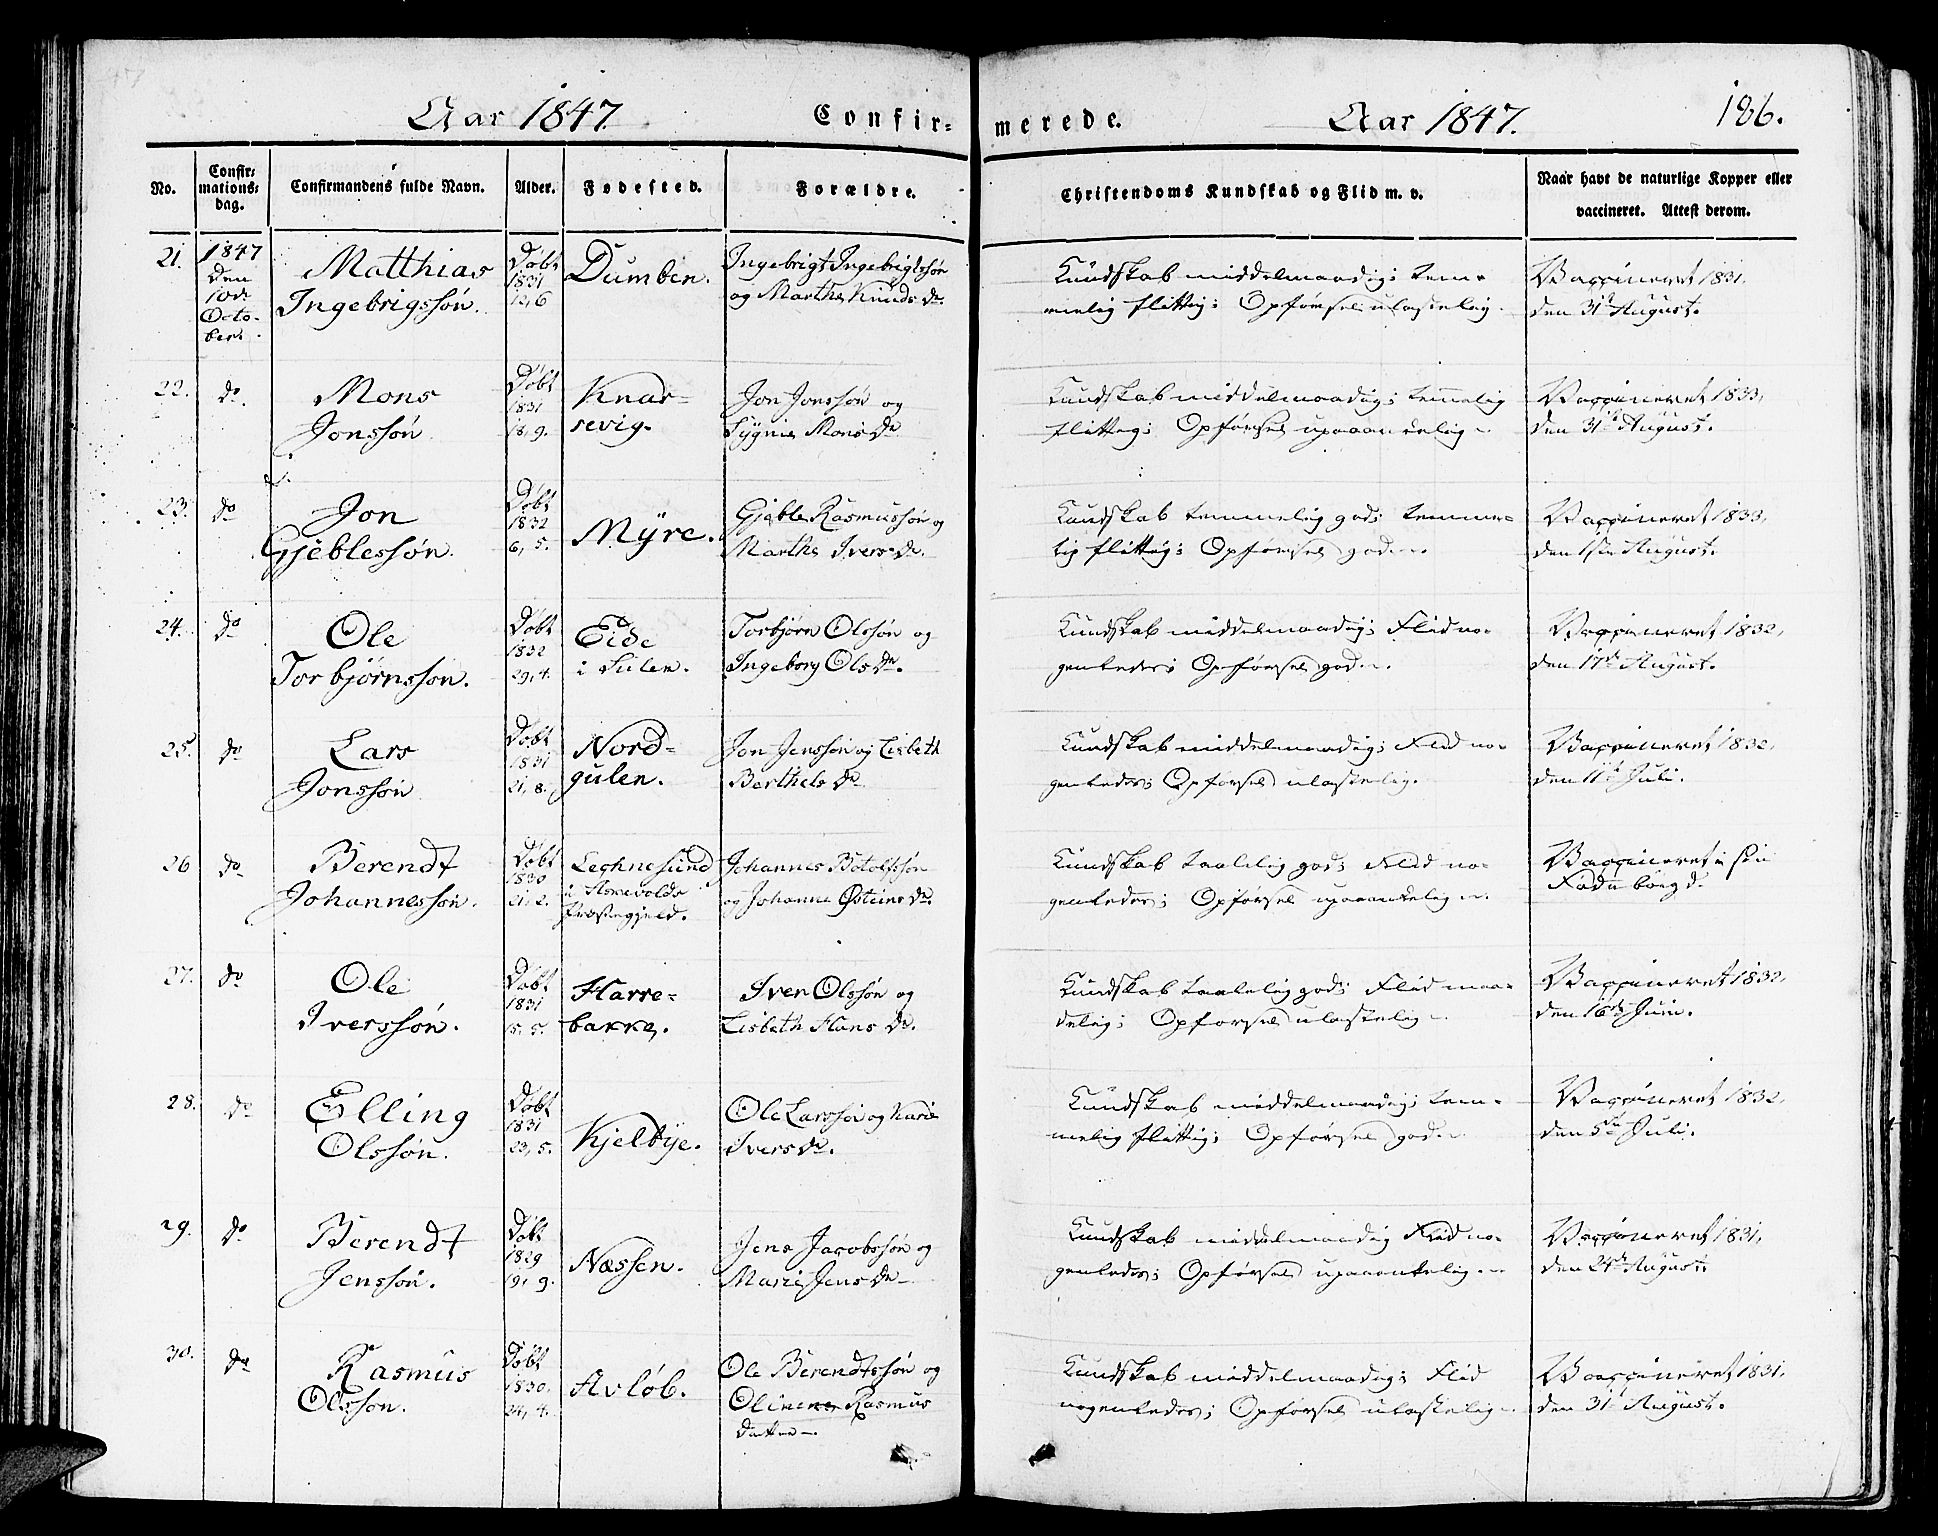 Aar 1847. Confir-
merede. Aar 1847. 186.
No. Confir- mations- dag. Confirmandens fulde Navn. Alder. Fødested. Forældre. Christendoms Kundskab og Flid m. v. Naar havt de naturlige Kopper eller vaccineret. Attest derom.
21. 1847 Døbt
den Matthias 1831 Dumben. Ingebrigt Ingebrigtssøn Kundskab middelmaadig; tem- Vaccineret 1831,
10de Ingebrigssøn. 12, 6 og Marthe Knuds Dr. melig flittig; Opførsel ulastelig. den 31te August.
Octo-
ber.
22. do Døbt
Mons 1831 Knar- Jon Jonssøn og Kundskab middelmaadig; temmelig Vaccineret 1833,
Jonssøn 18, 9. sevig. Sygnie Mons Dr flittig; Opførsel upaaankelig. den 31te August.
23. do Døbt
Jon 1832 Myre. Gjeble Rasmussøn og Kundskab temmelig god; temme- Vaccineret 1833,
Gjeblessøn. 6, 5. Marthe Ivers Dr. lig flittig; Opførsel god. den 1ste August.
24. do Døbt
Ole 1832 Eide Torbjørn Olssøn og Kundskab middelmaadig; Flid no- Vaccineret 1832,
Torbjørnssøn. 29, 4. i Sulen. Ingeborg Ols Dr. genledes; Opførsel god. den 17de August.
25. do Døbt
Lars 1831 Nord- Jon Jenssøn og Lisbeth Kundskab middelmaadig; Flid no- Vaccineret 1832,
Jonssøn 21, 8. gulen. Berthels Dr genledes; Opførsel ulastelig. den 11te Juli.
26 do Døbt
Berendt 1830 Leghnesund Johannes Botolfssøn Kundskab taalelig god; Flid no- Vaccineret i sin
Johannessøn. 21, 2. i Askevolds og Johanne Østeins Dr. genledes; Opførsel upaaankelig. Fødebøigd.
Præstegjeld.
27. do Døbt
Ole 1831 Harre- Iver Olssøn og Kundskab taalelig god; Flid maa- Vaccineret 1832,
Iverssøn. 15, 5. bakke. Lisbeth Hans Dr. delig; Opførsel ulastelig. den 16de Juni.
28. do Døbt
Elling 1831 Kjelbye. Ole Larssøn og Kari Kundskab middelmaadig; tem- Vaccineret 1832,
Olssøn. 23, 5. Ivers Dr. melig flittig; Opførsel god. den 5te Juli.
29. do Døbt
Berendt 1829 Næssen. Jens Jacobssøn og Kundskab middelmaadig Flid no- Vaccineret 1831,
Jenssøn. 19, 9. Marie Jens Dr genledes; Opførsel upaaankelig. den 24de August.
30. do Døbt
Rasmus 1830. Avløb. Ole Berendtssøn og Kundskab middelmaadig; Flid Vaccineret 1831,
Olssøn. 24, 4. Oline Rasmus nogenledes; Opførsel ulastelig. den 31te August.
datter